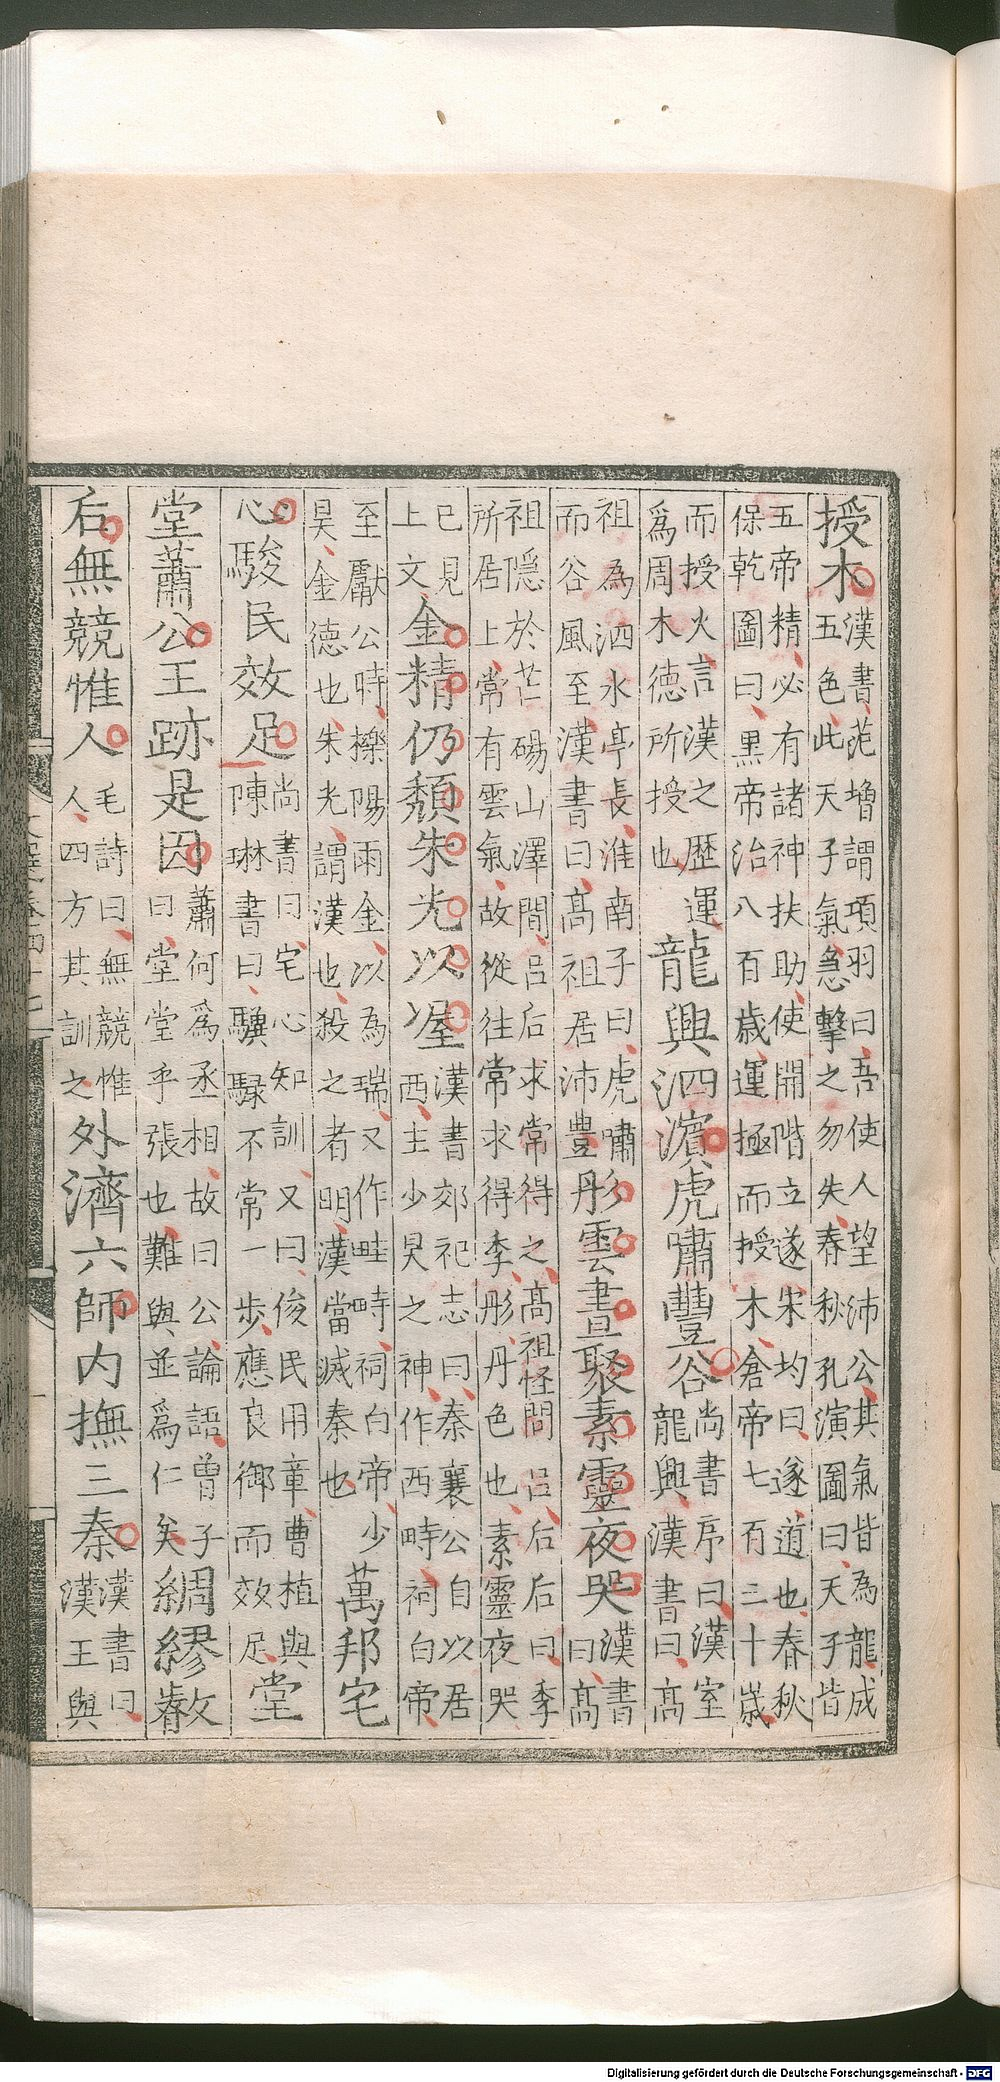 授木
漢書范增謂項羽曰吾使人望沛公其氣皆為龍成
五色此天子氣急擊之勿失春秋孔演圖曰天子皆
五帝精必有諸神扶助使開階立遂宋均曰遂道也春秋
保乾圖曰黑帝治八百歲運極而授木倉帝七百二十歲
而授火言漢之歴運
為周木德所授也
龍興泗濱虎嘯豐谷
尚書序曰漢室
龍興漢書曰高
祖為泗水亭長淮南子曰虎嘯
而谷風至漢書曰高祖居沛豊
彤雲晝聚素靈夜哭
漢書
曰高
祖隱於芒碭山澤間呂后求常得之高祖怪問呂后后曰季
所居上常有雲氣故從往常求得季彤丹色也素靈夜哭
已見
上文
金精仍頹朱光以渥
漢書郊祀志曰秦襄公自以居
西主少昊之神作西畤祠白帝
至獻公時櫟陽雨金以為瑞又作畦畤祠白帝少
昊金德也朱光謂漢也殺之者明漢當滅秦也
萬邦宅
心駿民效足
尚書曰宅心知訓又曰俊民用章曹植與
陳琳書曰驥騄不常一步應良御而效足
堂
堂蕭公王跡是因
蕭何為丞相故曰公論語曾子
曰堂堂乎張也難與並為仁矣
綢繆叡
后無競惟人
毛詩曰無競惟
人四方其訓之
外濟六師内撫三秦
漢書曰
漢王與
Digitalisierung gefördert durch die Deutsche Forschungsgemeinschaft - DFG